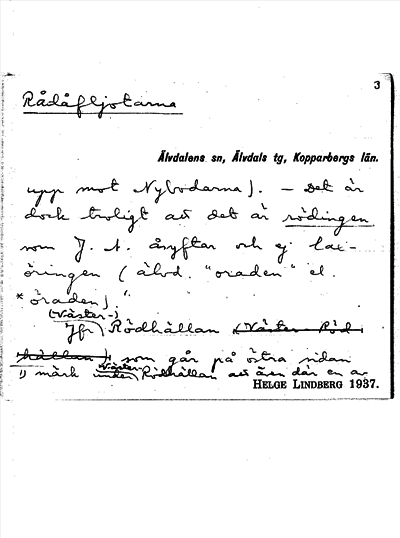 3
Rådåfljotarna
Älvdalens sn, Älvdals tg, Kopparbergs län.
upp mot Nybodarna). – Det är
dock troligt att det är rödingen
som J. A. åsyftar och ej lax-
öringen (älvd. "oraden" el.
* öraden).
(Väster-)
Jfr Rödhällan (Väster Röd
hällan), som går på östra sidan
1) märk under Väster Rödhällan att även där en av
HELGE LINDBERG 1937.